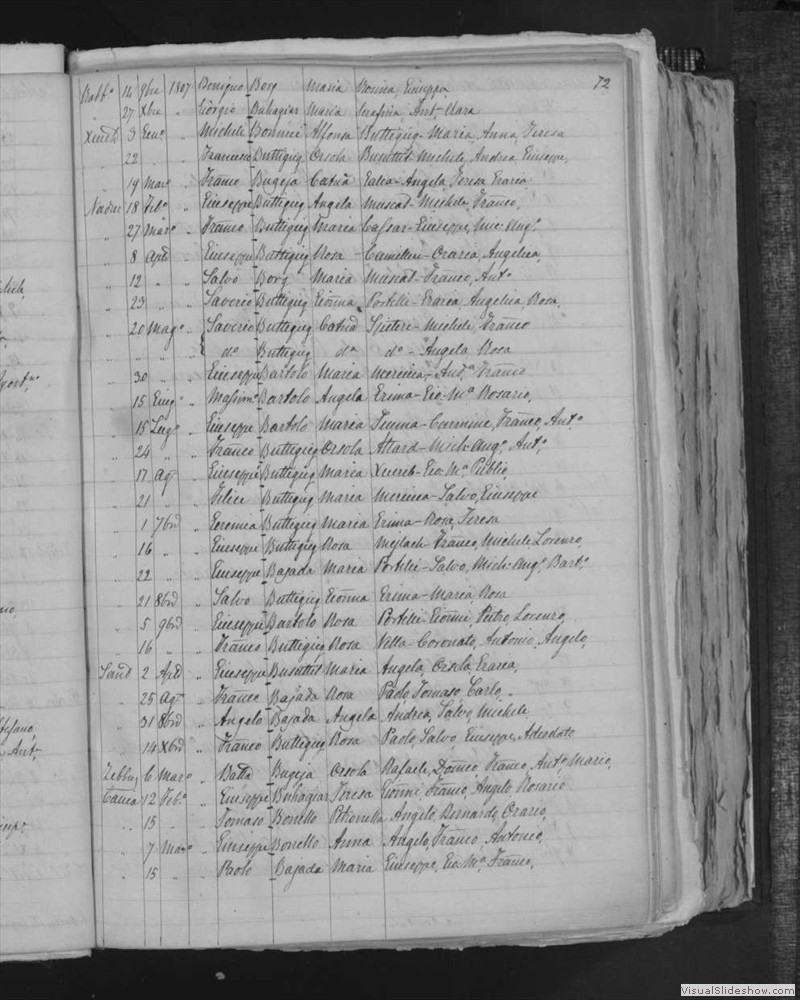 72
Rabb.o 14 9bre 1807 Benigno Borg Maria Rosina, Giuseppa
" 27 Xbre " Giorgio Buhagiar Maria Serafina, Ant. Clara
3 Gen.o " Michele Bonnici Alfonsa Buttigieg - Maria, Anna, Teresa
22 " " Francesco Buttigieg Orsola Busuttil - Michele, Andrea, Giuseppe,
" 19 Marzo " Franco Bugeja Angela, Teresa, Grazia
Nadur 18 Feb.o " Giuseppe Buttigieg Angela Muscat - Michele, Franco,
" 27 Marzo " Franco Buttigieg Maria Cassar - Giuseppe, Mic: Ang.o
" 8 Aple " Giuseppe Buttigieg Rosa Camilleri - Orazia, Angelica,
" 12 " " Salvo Borg Maria Muscat - Franco, Ant.o
" 23 " " Saverio Buttigieg Gioanna Portelli - Grazia, Angelica, Rosa,
" 20 Mag.o " Saverio Buttigieg Catna Spiteri - Michele, Franco
" " " d.o Buttigieg d.a d.o - Angela Rosa
" 30 " " Giuseppe Bartolo Maria Mercieca - And.a Franco
" 15 Giug.o " Massimo Bartolo Angela Grima - Gio: M.a Rosario,
15 Lug.o " Giuseppe Bartolo Maria Carmine, Franco, Ant.o
" 24 " " Franco Buttigieg Orsola Attard - Mich: Ang.o, Ant.o,
17 Ag.o " Giuseppe Buttigieg Maria Xuereb - Gio: M.a Publio,
21 " " Felice Buttigieg Maria Mercieca - Salvo, Giuseppe
" 1 7bre " Buttigieg Maria Grima - Rosa, Teresa
" 16 " " Giuseppe Buttigieg Rosa Mejlach - Franco, Michele, Lorenzo,
" 22 " " Giuseppe Bajada Maria Portelli - Salvo, Mich: Ang.o, Bart.o
21 8bre " Salvo Buttigieg Gioanna Grima - Maria Rosa
" 5 9bre " Giuseppe Bartolo Rosa Portelli - Gioanni, Pietro, Lorenzo,
" 16 " " Franco Buttigieg Rosa Vella - Coronato, Antonio, Angelo,
Sand 2 Aple " Giuseppe Busuttil Maria Angela, Orsola, Grazia,
25 Ag.o " Franco Bajada Rosa Paolo Tomaso, Carlo,
" 31 8bre " Angelo Bajada Angela Andrea, Salvo, Michele,
" 14 Xbre " Franco Buttigieg Rosa Paolo, Salvo, Giuseppe, Adeodato
Zebbug 6 Marzo " Batta Bugeja Orsola Rafaele, Domco, Franco, Ant.o, Mario,
12 Feb.o " Giuseppe Buhagiar Teresa Gioanni, Franco, Angelo, Rosario
" 15 " " Tomaso Bonello Petronilla Angelo, Bernardo, Orazio,
" 7 Marzo " Giuseppe Bonello Anna Angelo, Franco, Antonio,
" 15 " " Paolo Bajada Maria Giuseppe, Gio: M.a Franco,
VisualSlideshow.com